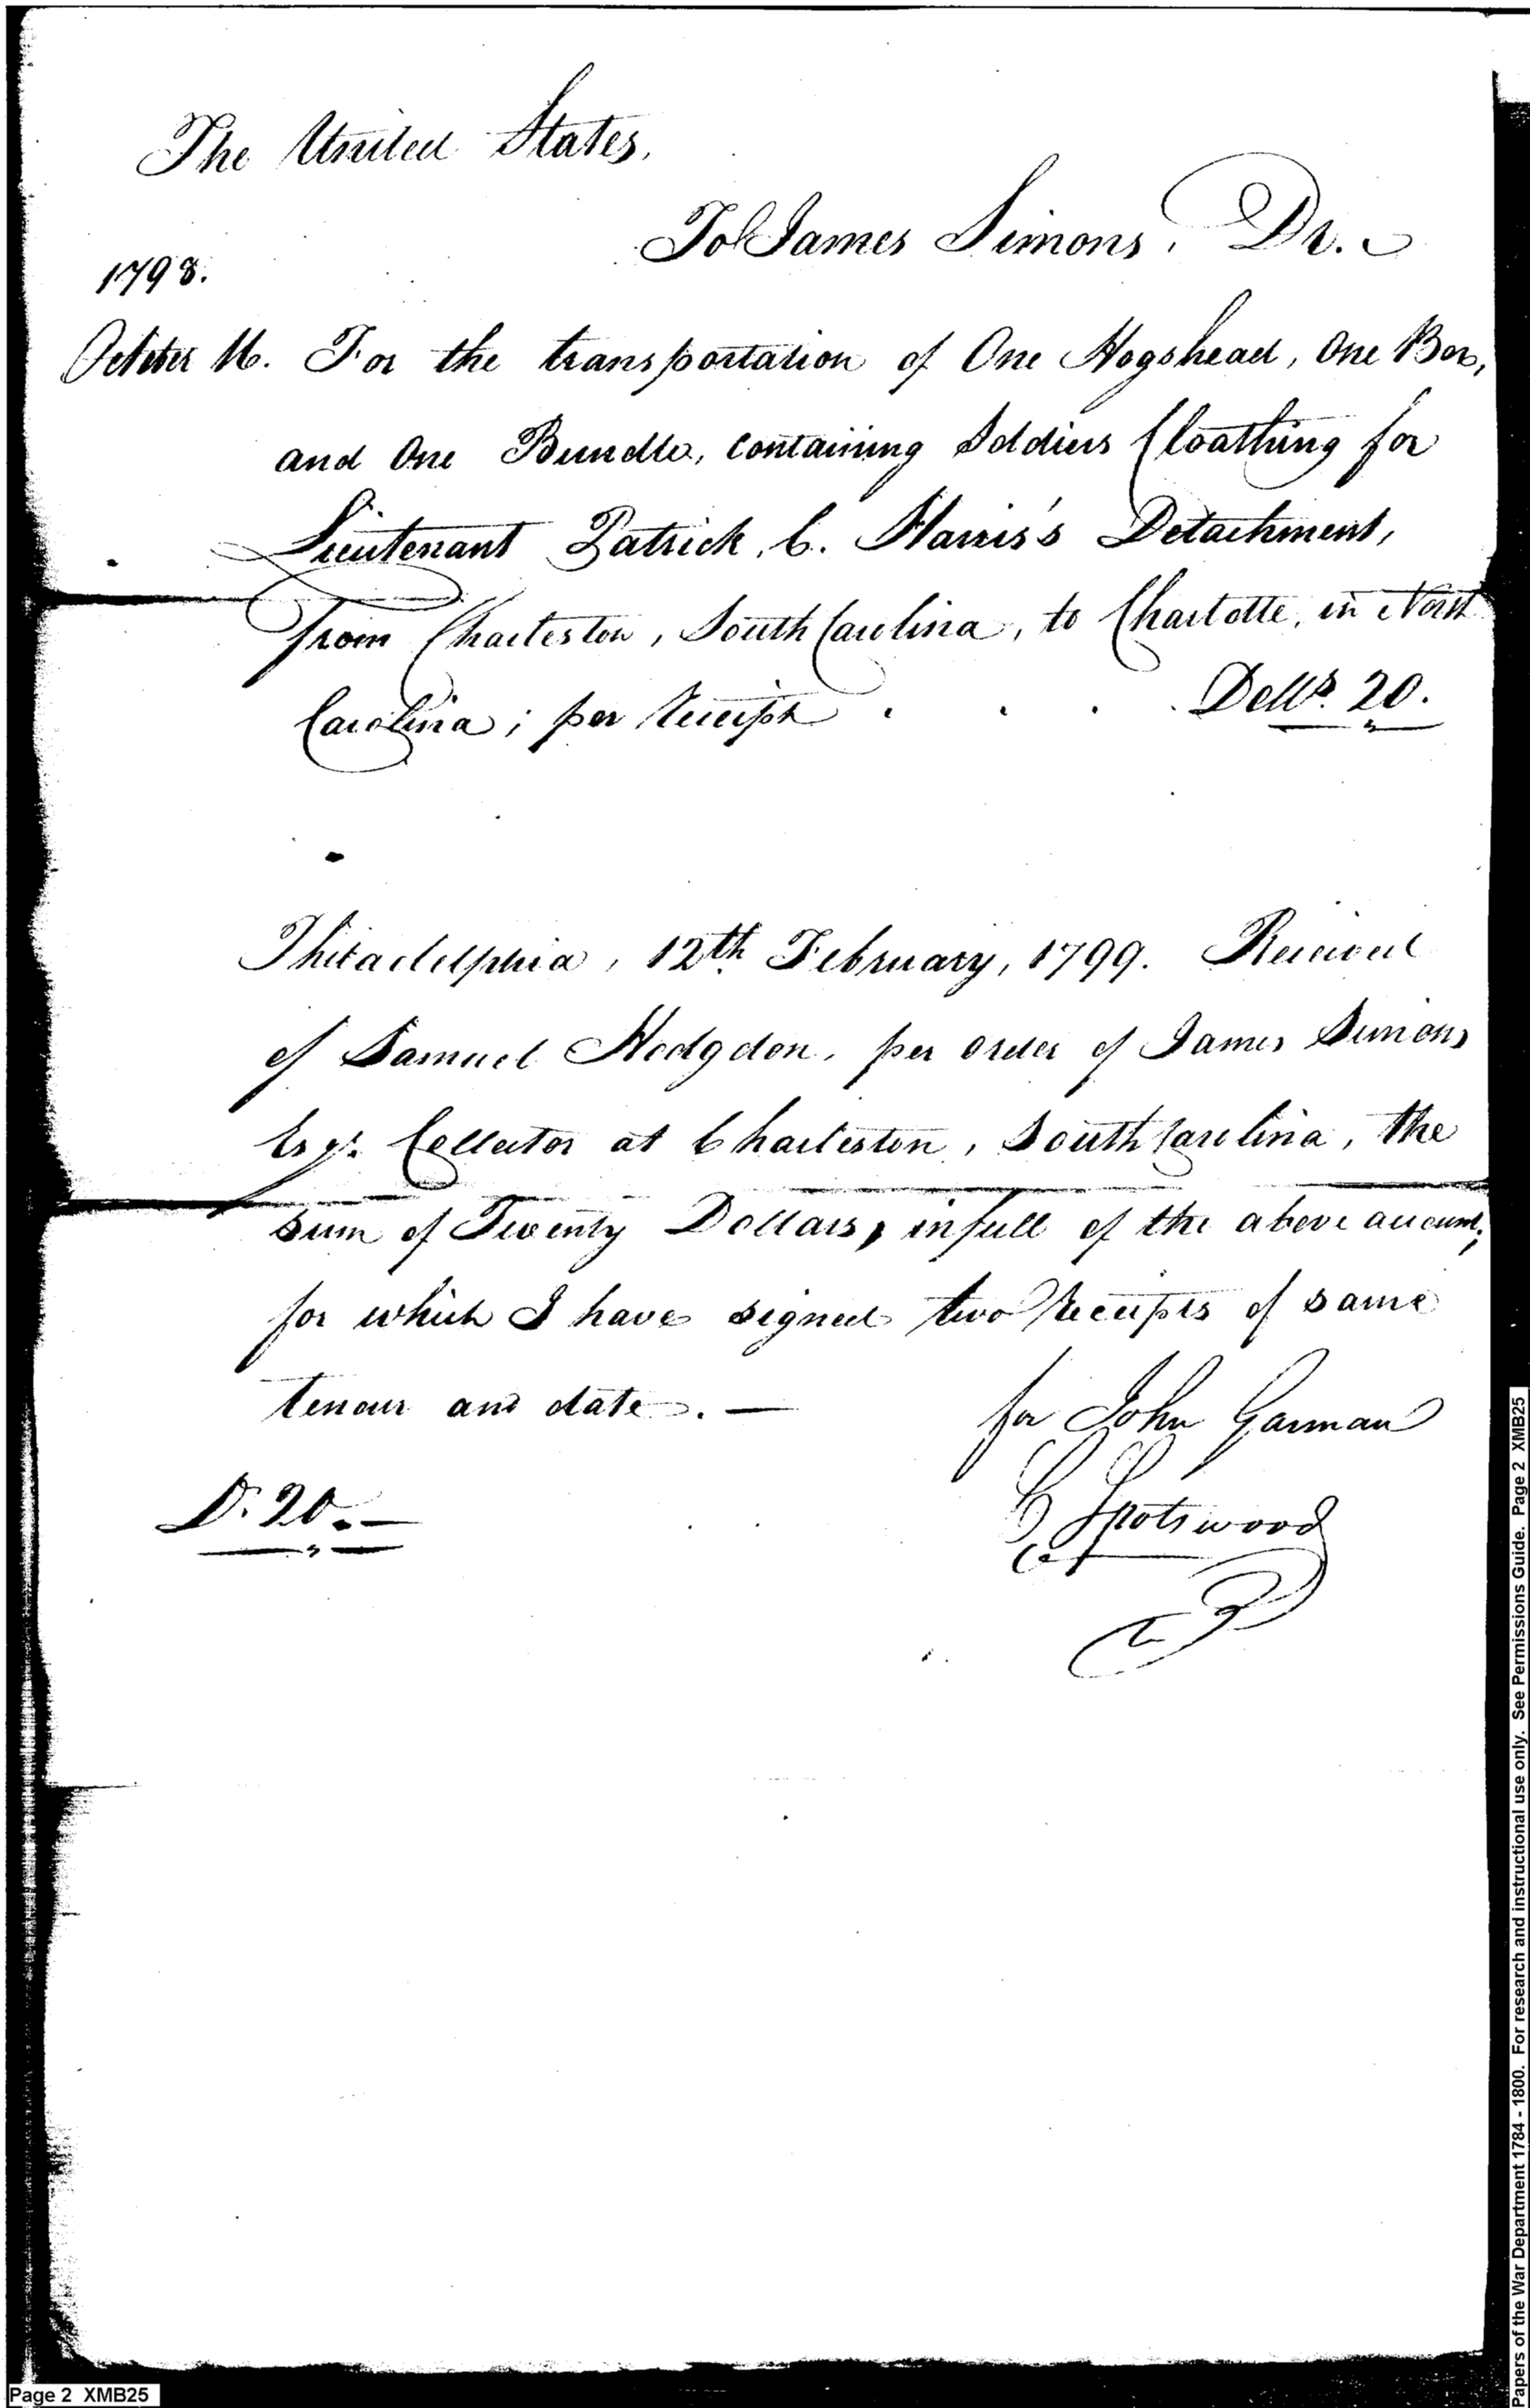 The United States,
To James Simons, Dr.
1798.
October 16. For the transportation of One Hogshead, One Box,
and One Bundle, containing Soldiers Cloathing for
Lieutenant Patrick C. Harris's Detachment,
from Charleston, South Carolina, to Charlotte, in North
Carolina; per receipt . . . Dolls. 20.
Philadelphia, 12th February, 1799. Received
of Samuel Hodgdon, per order of James Simons
Esqr. Collector at Charleston, South Carolina, the
sum of Twenty Dollars, in full of the above account;
for which I have signed two receipts of same
tenour and date. —
for John Garman
D. 20. —
Spotswood
Page 2 XMB25
Papers of the War Department 1784 - 1800. For research and instructional use only. See Permissions Guide. Page 2 XMB25